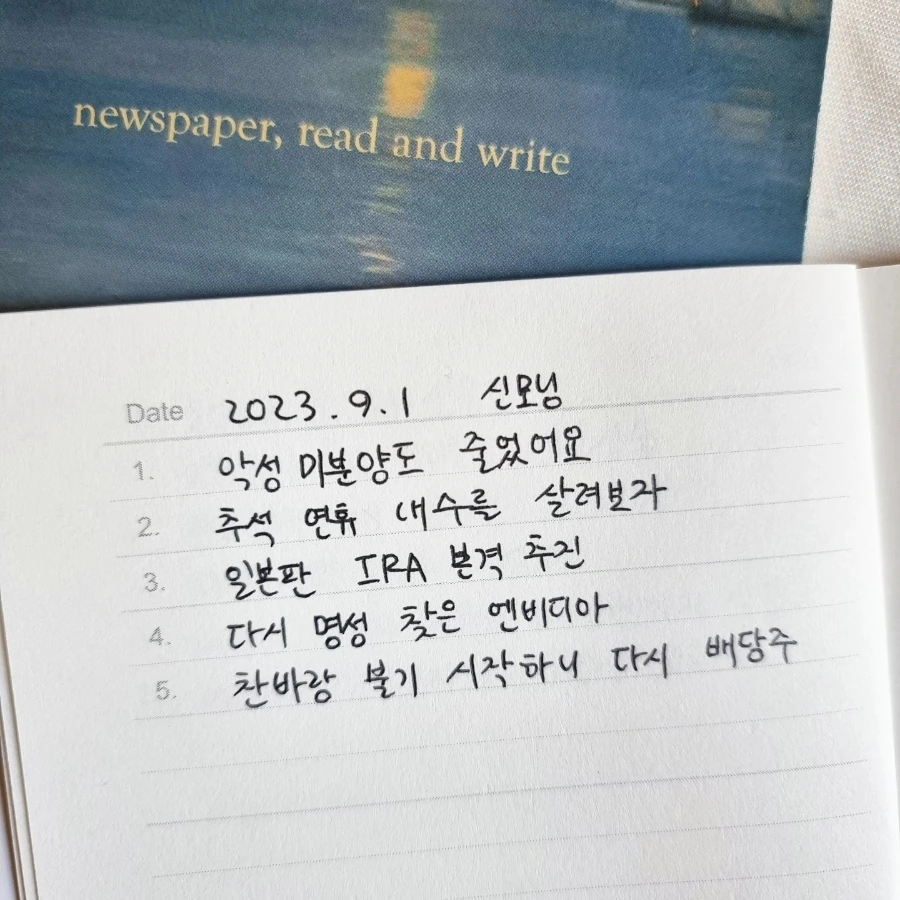 newspaper, read and write
Date 2023.9.1 신모닝
1. 악성 미분양도 줄었어요
2. 추석 연휴 내수를 살려보자
3. 일본판 IRA 본격 추진
4. 다시 명성 찾은 엔비디아
5. 찬바람 불기 시작하니 다시 배당주